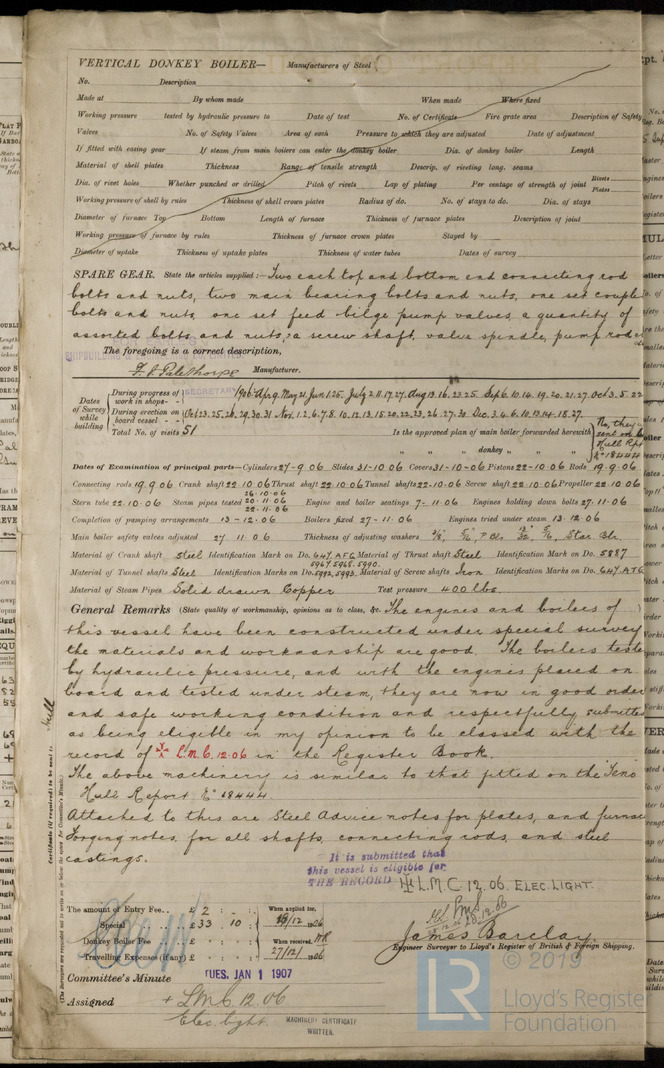 VERTICAL DONKEY BOILER— Manufacturers of Steel
No. Description
Made at By whom made When made Where fixed
Working pressure tested by hydraulic pressure to Date of test No. of Certificate Fire grate area Description of Safety
Valves No. of Safety Valves Area of each Pressure to which they are adjusted Date of adjustment
If fitted with easing gear If steam from main boilers can enter the donkey boiler Dia. of donkey boiler Length
Material of shell plates Thickness Range of tensile strength Descrip. of riveting long. seams
Dia. of rivet holes Whether punched or drilled Pitch of rivets Lap of plating Per centage of strength of joint Rivets Plates
Working pressure of shell by rules Thickness of shell crown plates Radius of do. No. of stays to do. Dia. of stays
Diameter of furnace Top Bottom Length of furnace Thickness of furnace plates Description of joint
Working pressure of furnace by rules Thickness of furnace crown plates Stayed by
Diameter of uptake Thickness of uptake plates Thickness of water tubes Dates of survey
SPARE GEAR. State the articles supplied:— Two each top and bottom end connecting rod
bolts and nuts, two main bearing bolts and nuts, one set coupl
bolts and nuts, one set feed bilge pump valves, a quantity of
assorted bolts and nuts, a screw shaft, valve spindle, pump rod
The foregoing is a correct description,
F. J. Palethorpe Manufacturer.
SECRETARY
Dates of Survey while building
During progress of work in shops - - 1906 Apr 9. May 21. Jun 1. 25. July 2. 11. 17. 27. Aug 13. 16. 23. 25. Sep 6. 10. 14. 19. 20. 21. 27. Oct 3. 5. 22
During erection on board vessel - - Oct 23. 25. 26. 29. 30. 31 Nov. 1. 2. 6. 7. 8. 10. 12. 13. 15. 20. 22. 23. 26. 27. 30 Dec. 3. 4. 6. 10. 13. 14. 18. 27.
Total No. of visits 51 Is the approved plan of main boiler forwarded herewith No, they
sent on
Hull Rpt
No 18444
" " " donkey " " "
Dates of Examination of principal parts—Cylinders 27-9.06 Slides 31-10.06 Covers 31-10-06 Pistons 22-10.06 Rods 19.9.06
Connecting rods 19.9.06 Crank shaft 22.10.06 Thrust shaft 22.10.06 Tunnel shafts 22-10.06 Screw shaft 22.10.06 Propeller 22.10.06
26.10.06
Stern tube 22.10.06 Steam pipes tested 20.11.06 Engine and boiler seatings 7-11.06 Engines holding down bolts 27.11.06
22.11.06
Completion of pumping arrangements 13-12.06 Boilers fixed 27-11.06 Engines tried under steam 13.12.06
Main boiler safety valves adjusted 27 11.06 Thickness of adjusting washers
Material of Crank shaft Steel Identification Mark on Do. 647. A.F.G. Material of Thrust shaft Steel Identification Mark on Do. 5887
5967. 5968. 5990.
Material of Tunnel shafts Steel Identification Marks on Do. 5992. 5993. Material of Screw shafts Iron Identification Marks on Do. 647. A.F.G.
Material of Steam Pipes Solid drawn Copper Test pressure 400 lbs.
General Remarks (State quality of workmanship, opinions as to class, &c. The engines and boilers of
this vessel have been constructed under special survey
the materials and workmanship are good. The boilers teste
by hydraulic pressure, and with the engines placed on
board and tested under steam, they are now in good order
and safe working condition and respectfully submitted
as being eligible in my opinion to be classed with the
record of L.M.C. 12.06 in the Register Book.
The above machinery is similar to that fitted on the
Hull Report No 18444.
Attached to this are Steel Advice notes for plates, and furnac
Forging notes, for all shafts, connecting rods, and steel
castings.
It is submitted that
this vessel is eligible for
THE RECORD + L.M.C 12.06. ELEC. LIGHT.
The amount of Entry Fee.. £ 2 : : When applied for,
Special £ 33 . 10 : /12/1906
Donkey Boiler Fee £ : : When received,
Travelling Expenses (if any) £ : : 27/12/1906
James Barclay
Engineer Surveyor to Lloyd's Register of British & Foreign Shipping.
Committee's Minute TUES. JAN 1 1907
Assigned + L.M.C. 12.06
Elec. light.
MACHINERY CERTIFICATE
WRITTEN.
Certificate (if required) to be sent to Hull
(The Surveyors are requested not to write on or below the space for Committee's Minute.)
© 2019
LR
Lloyd's Register
Foundation